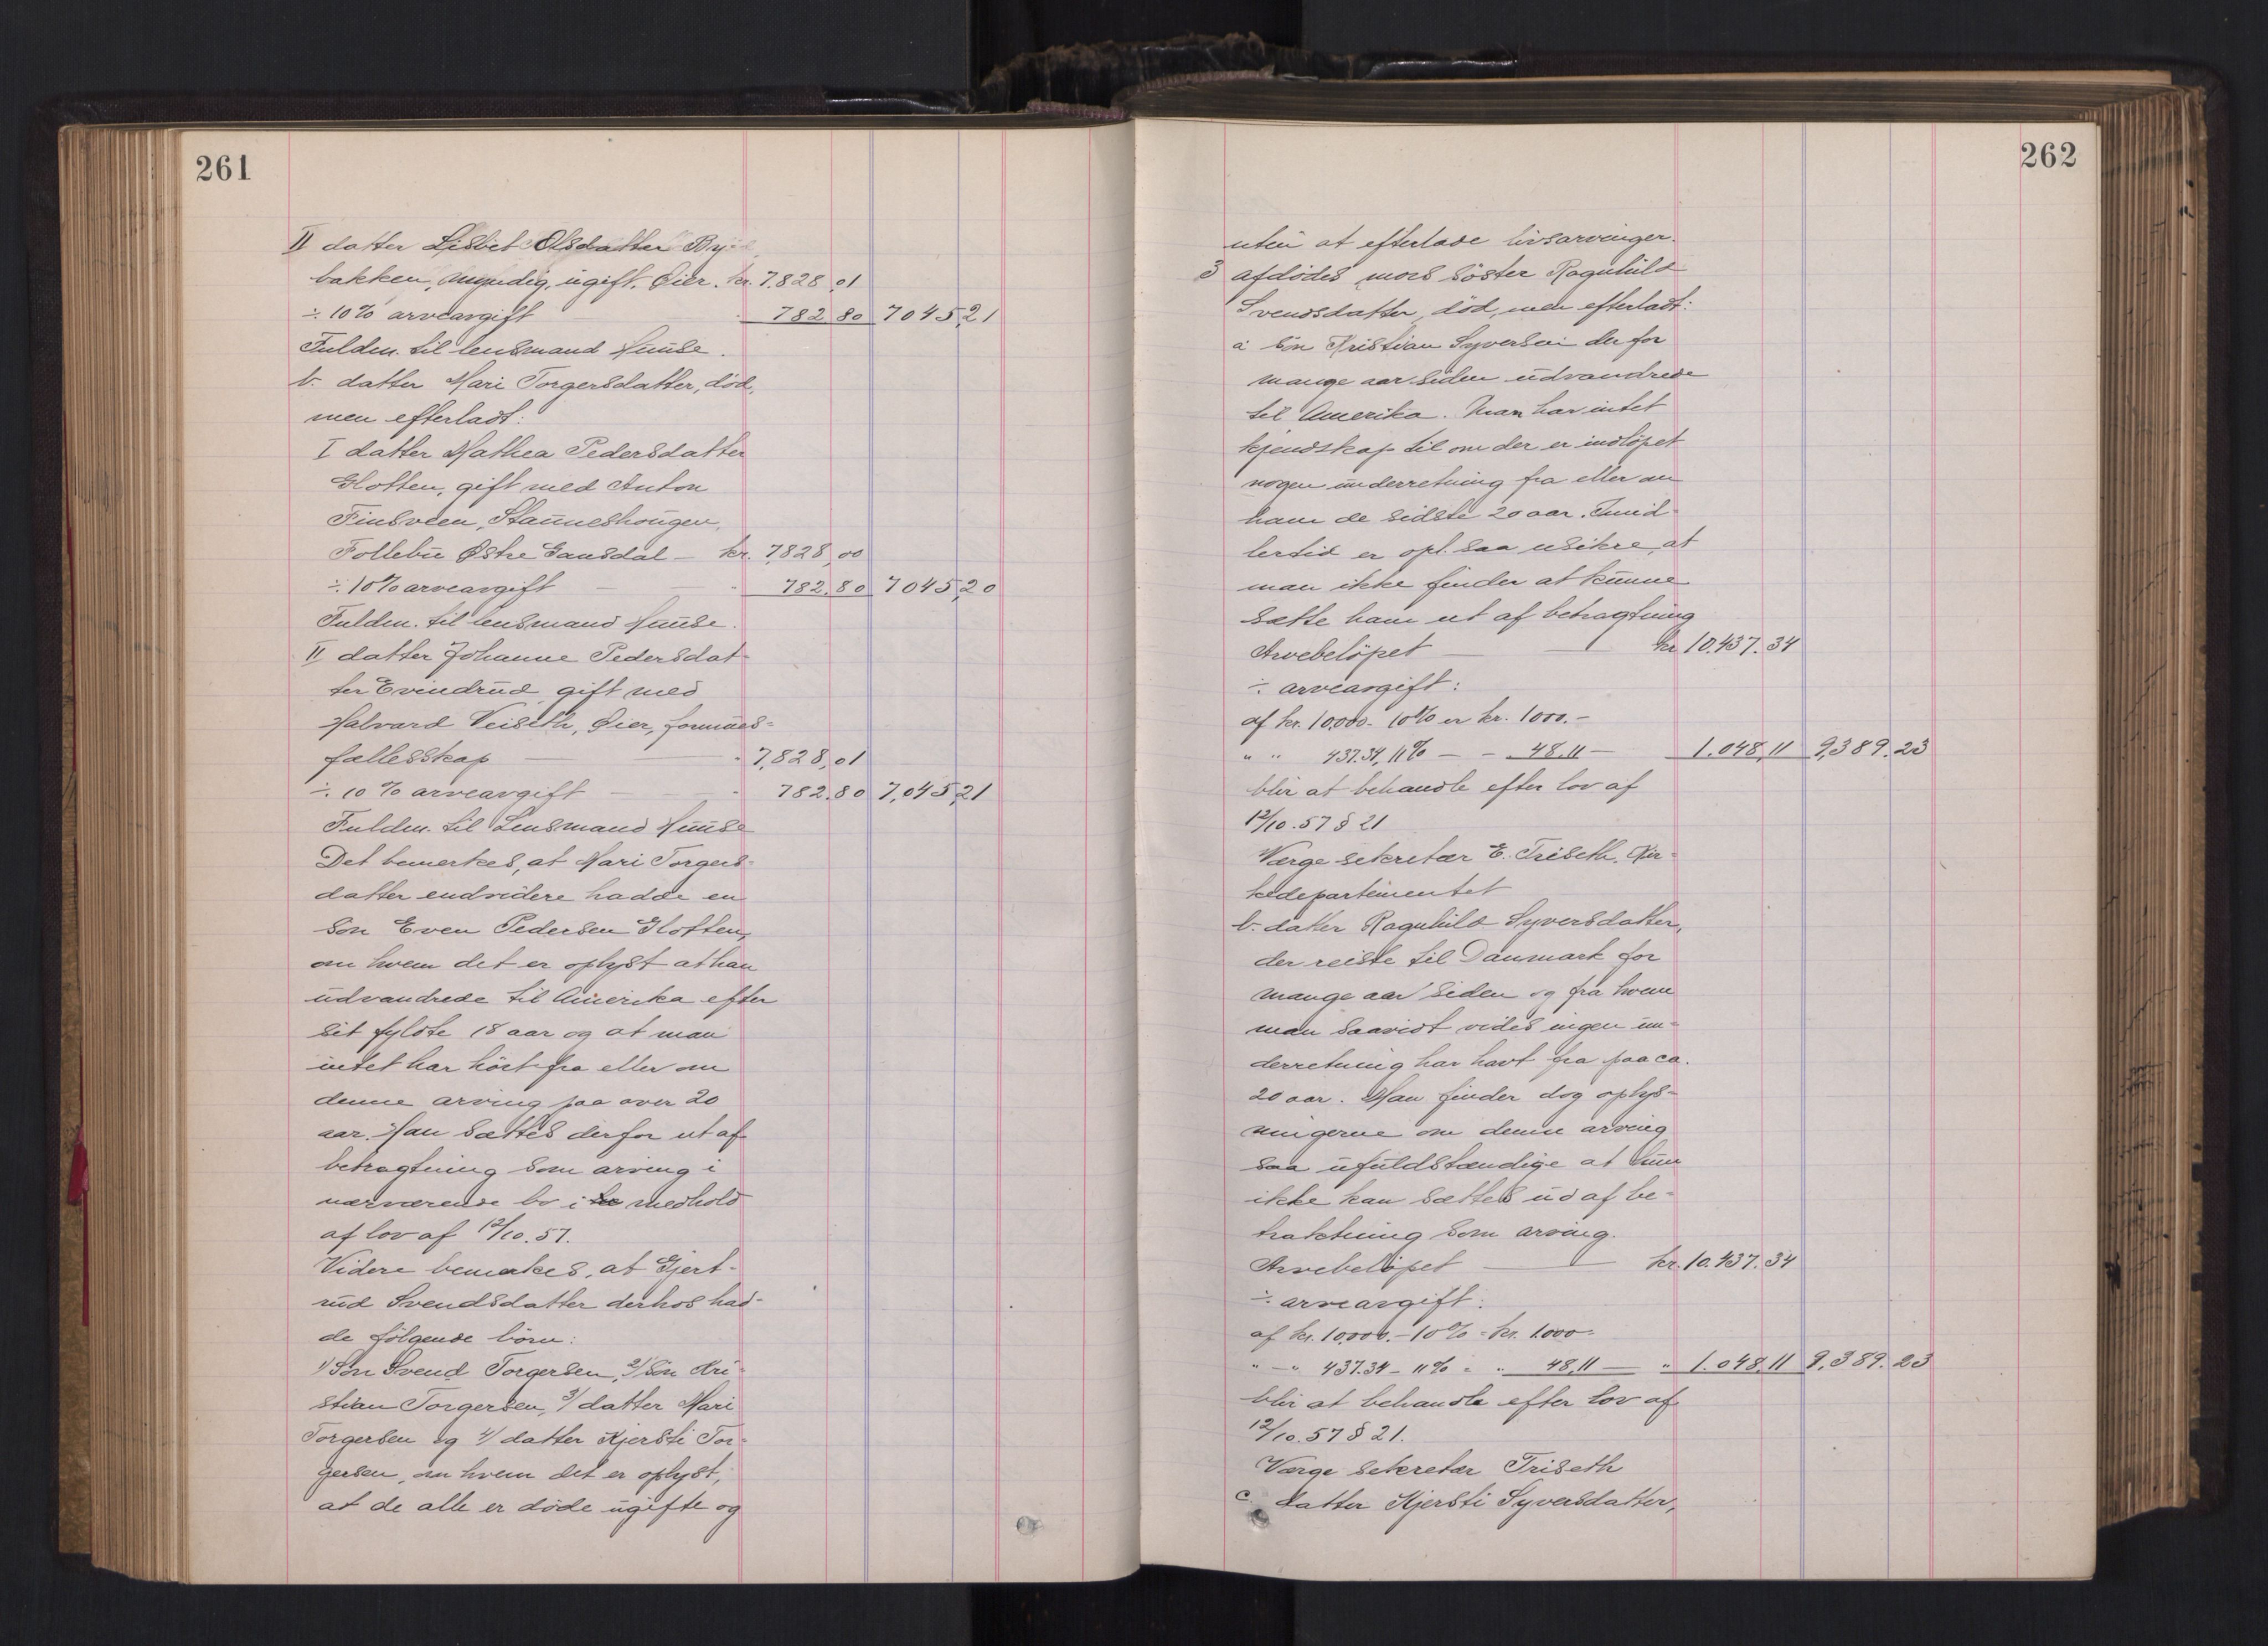 261
II datter Lisbet Olsdatter Byd
bakken, myndig, ugift, Øier. kr. 7.828,01
÷ 10% arveavgift 782,80 7045,21
Fuldm. til lensmand Huuse.
b. datter Mari Torgersdatter, død,
men efterladt:
I datter Mathea Pedersdatter
Glotten, gift med Anton
Finsveen, Stauneshougen,
Follebu Østre Gausdal – kr. 7,828,00
÷ 10% arveavgift — - 782.80 7045,20
Fuldm. til lensmand Huuse.
II datter Johanne Pedersdat-
ter Evindrud gift med
Halvard Veiseth, Øier, formues-
fællesskap — - 7,828,01
÷ 10 % arveavgift — - 782.80 7,045,21
Fuldm. til Lensmand Huuse
Det bemerkes, at Mari Torgers-
datter endvidere hadde en
sön Even Pedersen Glotten,
om hvem det er oplyst at han
udvandrede til Amerika efter
sit fyldte 18 aar og at man
intet har hört fra eller om
denne arving paa over 20
aar. Han sættes derfor ut af
betragtning som arving i
nærværende bo i medhold
af lov af 12/10.57.
Videre bemerkes, at Gjert-
rud Svendsdatter derhos had-
de fölgende börn:
1) Sön Svend Torgersen, 2) sön Kri-
stian Torgersen, 3) datter Mari
Torgersen og 4) datter Kjersti Tor-
gersen, om hvem det er oplyst,
at de alle er døde ugifte og
262
uten at efterlade livsarvinger.
3 afdødes mors söster Ragnhild
Svendsdatter, död, men efterladt:
a sön Kristian Syversen der for
mange aar siden udvandrede
til Amerika. Man har intet
kjendskap til om der er indlöpet
nogen underretning fra eller om
ham de sidste 20 aar. Imid-
lertid er opl. saa usikre, at
man ikke finder at kunne
sætte ham ut af betragtning
Arvebelöpet — kr 10.437.34
÷ arveavgift:
af kr. 10,000.- 10% er kr. 1000.-
" " 437.34, 11% — - 48.11 — 1.048,11 9,389.23
blir at behandle efter lov af
12/10.57 § 21
Værge sekretær E. Triseth, Kir-
kedepartementet
b. datter Ragnhild Syversdatter,
der reiste til Danmark for
mange aar siden og fra hvem
man saavidt vides ingen un-
derretning har havt fra paa ca.
20 aar. Man finder dog oplys-
ningerne om denne arving
saa ufuldstændige at hun
ikke kan sættes ud af be-
traktning som arving.
Arvebelöpet — kr. 10.437.34
÷ arveavgift:
af kr. 10,000.- 10% = kr. 1.000-
" - " 437.34 - 11% = " 48,11 — " 1.048,11 9,389.23
blir at behandle efter lov af
12/10.57 § 21.
Værge sekretær Triseth
c. datter Kjersti Syversdatter,